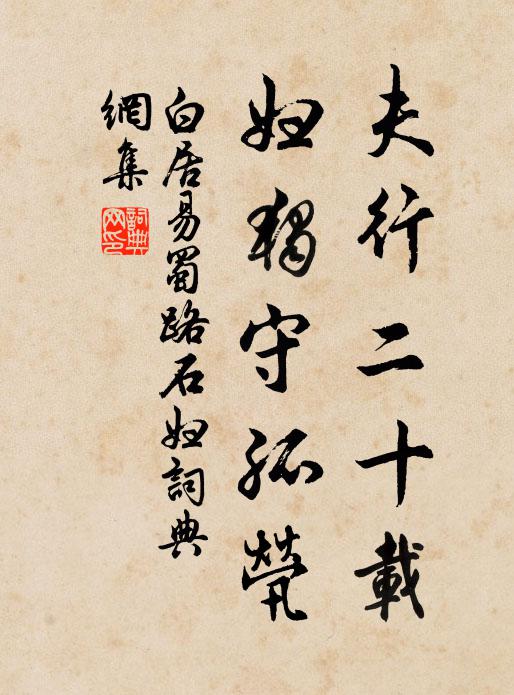 夫行二十載
婦獨守孤煢
白居易蜀路石婦詞典
網集
詞典
網印